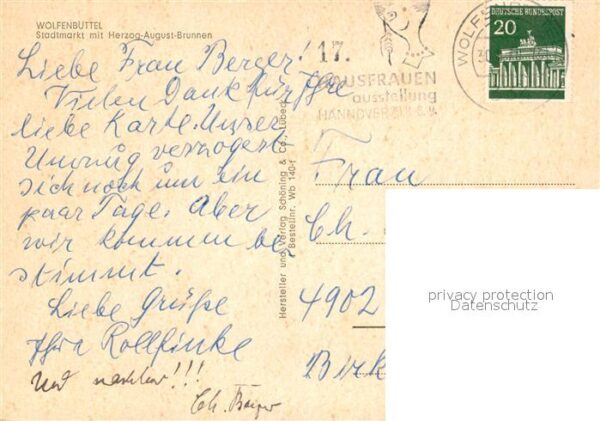 WOLFENBÜTTEL
Stadtmarkt mit Herzog-August-Brunnen
Liebe Frau Berger!
Vielen Dank für Ihre
liebe Karte. Unser
Umzug verzögert
sich noch um ein
paar Tage. Aber
wir kommen be
stimmt.
Liebe Grüße
Ihre Rollfinke
Und
Hersteller und Verlag Schöning & Co., Lübeck
Bestellnr. Wb 140-f
17.
HAUSFRAUEN
ausstellung
HANNOVER
WOLFS
DEUTSCHE BUNDESPOST
20
Frau
Ch.
4902
Birk
privacy protection
Datenschutz